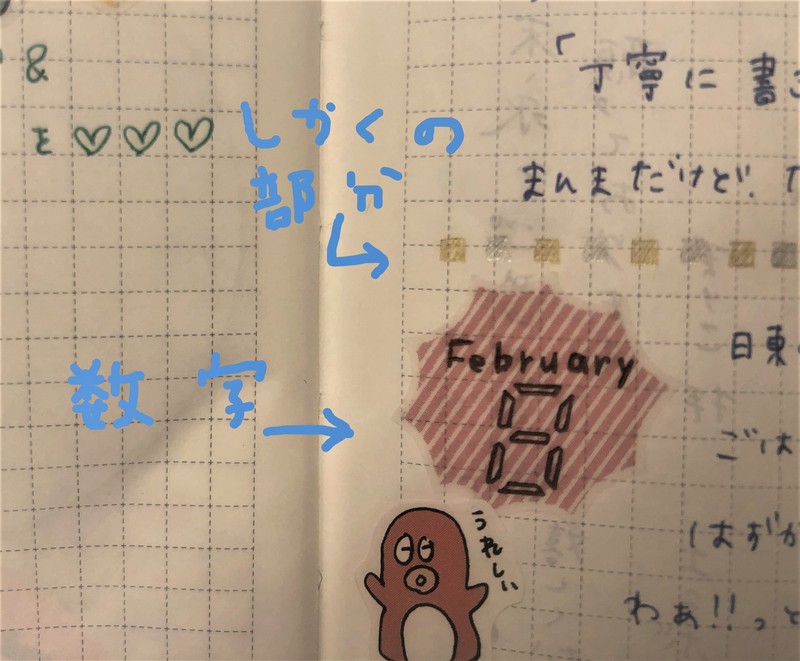 &
を♡♡♡
しかくの
部分
数字
「丁寧に書
まんまだけど、
February
8
うれしい
日東
ごは
はずか
わぁ!!っと